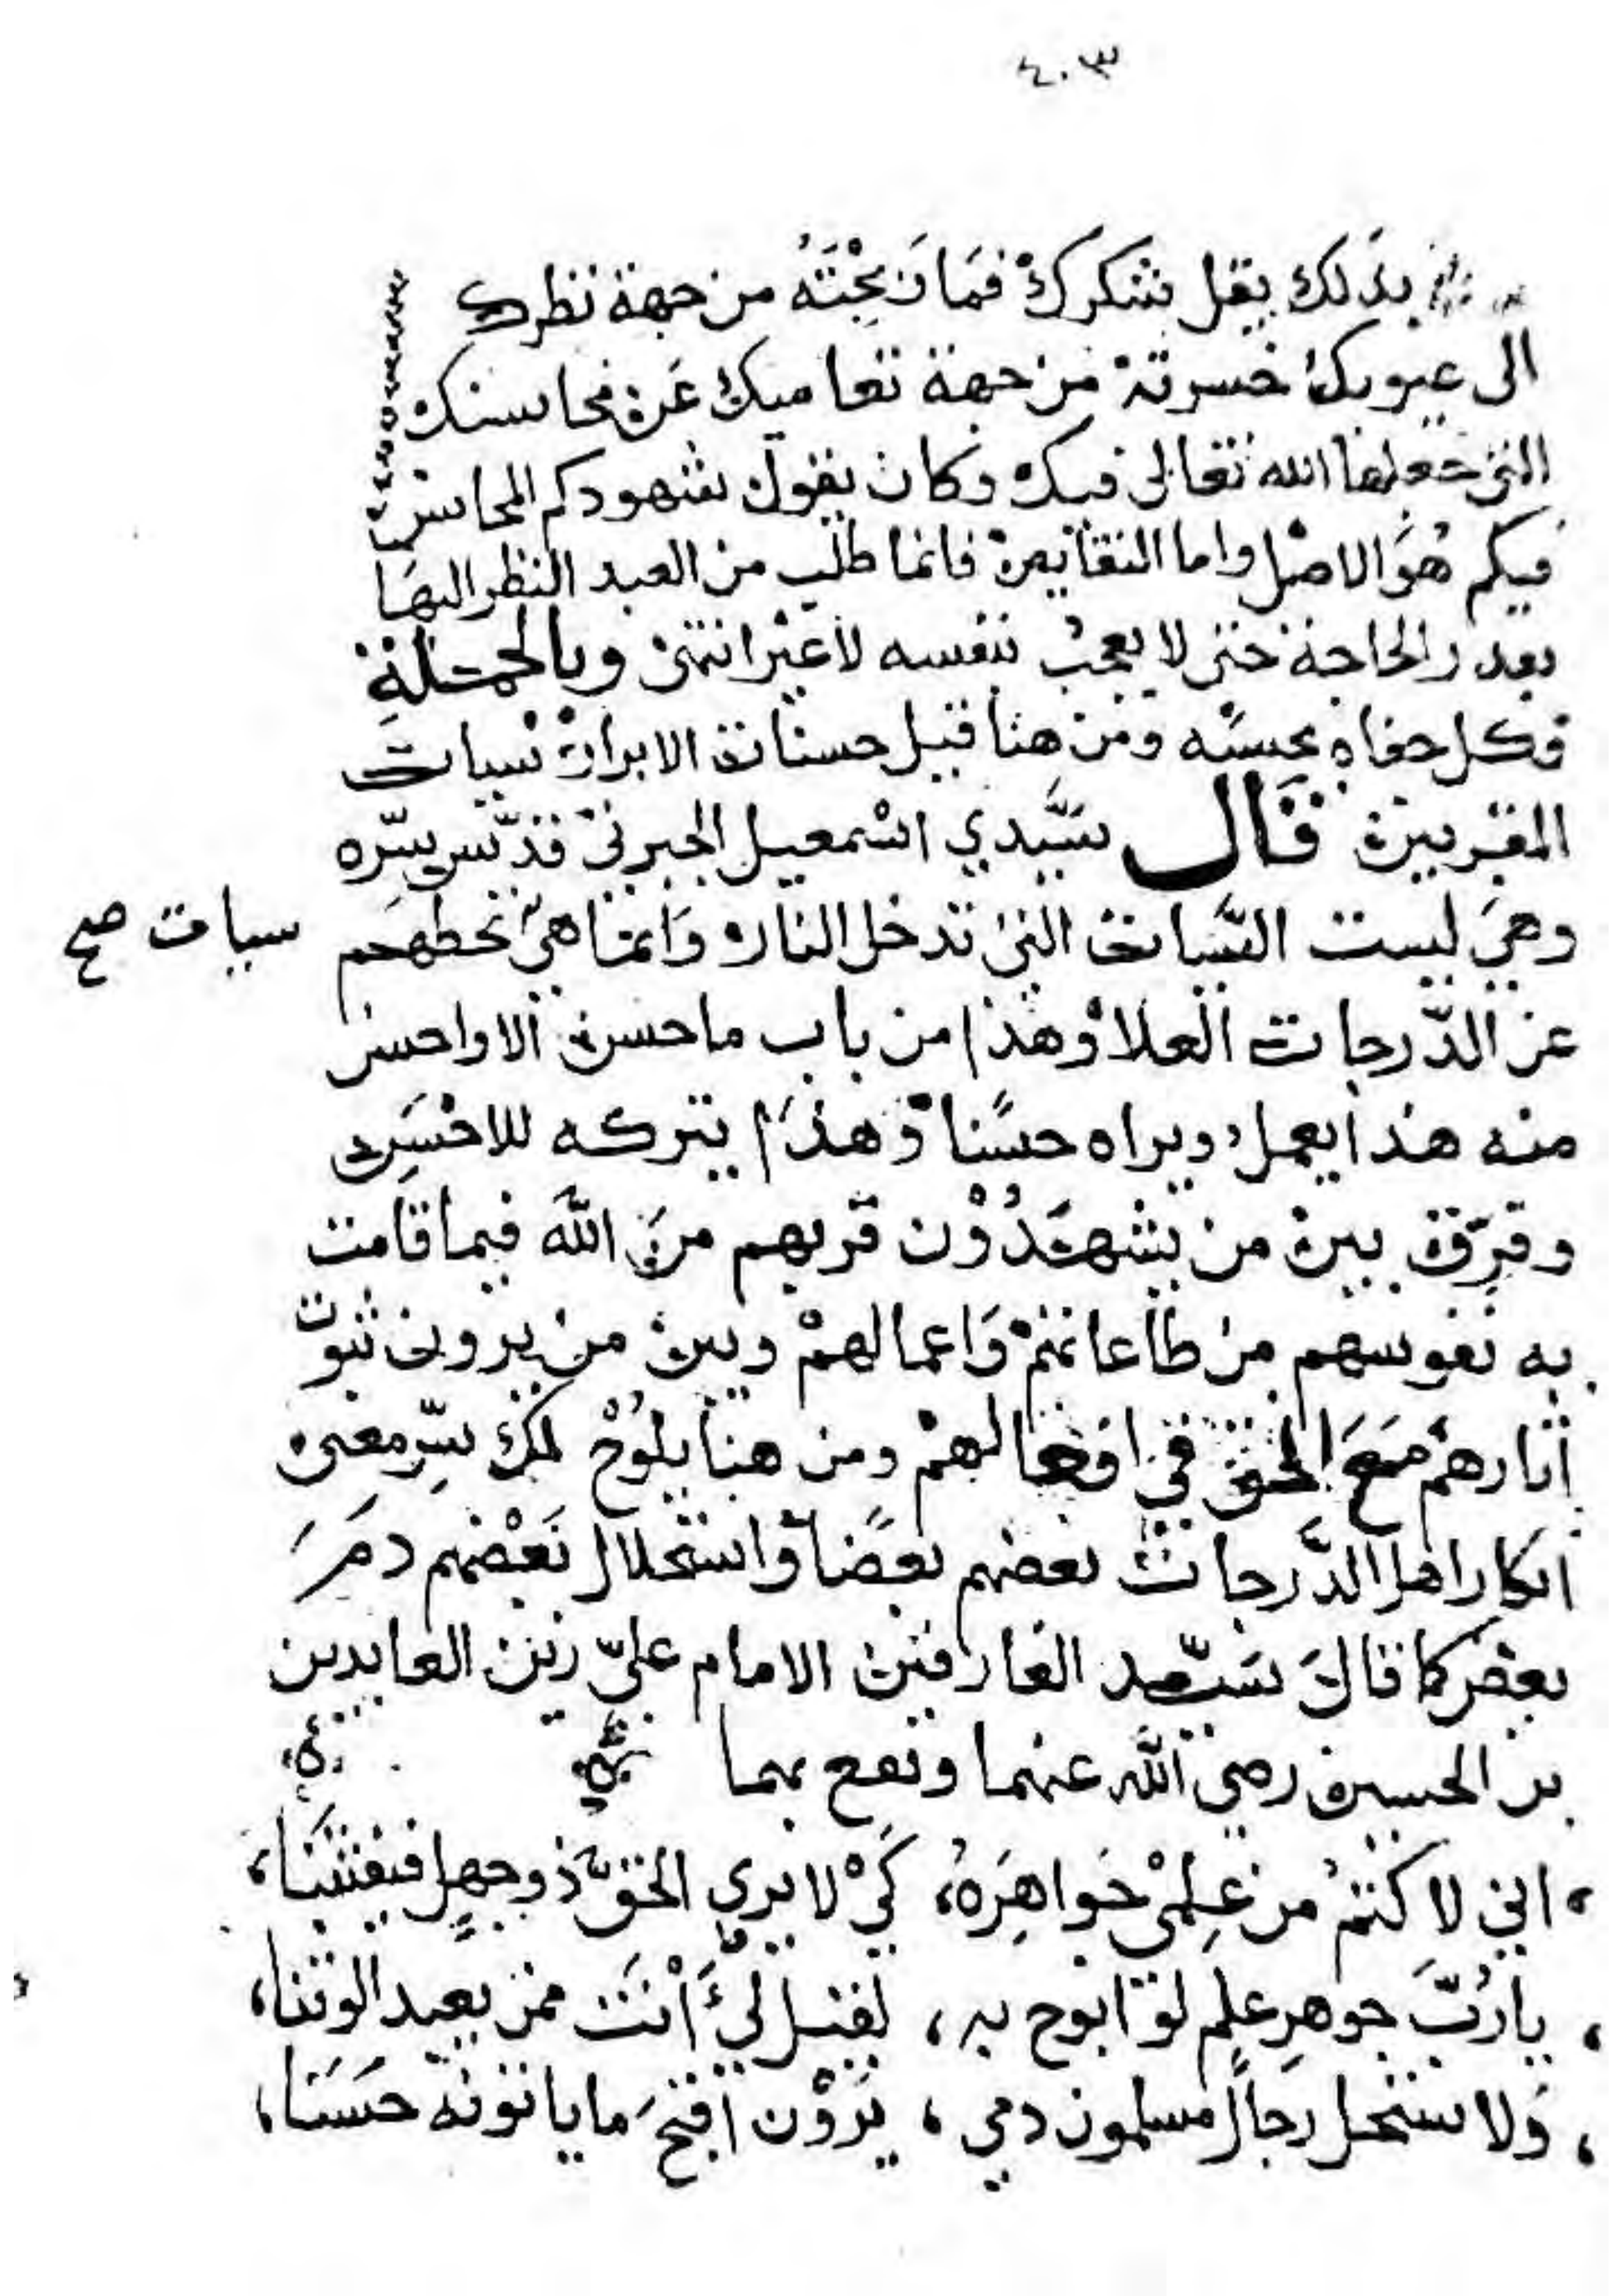 ٤٠٣
بذلك يقل شكرك فما رَبِحْتَهُ من جهة نظرك
الى عيوبك خسرته من جهة تعاميك عَن محاسنك
التي جعلها الله تعالى فيك وكان يقول شهودكم المحاسن
فيكم هُوَ الاصل واما النقايص فانما طلب من العبد النظر اليهَا
بعد الحاجة حتى لا يعجبُ بنفسه لا غير انتهى وبالجملة
فكل حفاه بحسبه ومن هنا قيل حسنات الابرار سيات
المقربين قال سَيّدي اسْمعيل الجبرتي قدّس سِرّه
وهيَ ليست السّيات التي تدخل النار وَانما هيَ تحطهم
سيات صح
عن الدّرجات العلا وهذا من باب ما حسن الا واحسن
منه هذا يعمل ويراه حسَنًا وَهذَا يتركه للاخسَرِى
وفَرّق بين من يشهَدُوْن قربهم مِنَ اللّه فيما قامت
به نفوسهم من طاعاتهمْ وَاعمالهمْ وبين من يرون ثبوت
اثارهمْ مَعَ الحق في افعالهمْ ومن هنا يلُوْحُ لك سِرّ معنى
انكار اهل الدَّرجات بعضهم بعضًا واستحلال بَعْضهم دمَ
بعض كما قالَ سَيّد العارفين الامام عليّ زين العابدين
بن الحسين رضي اللّه عنهما ونفع بهما
اني لا كتمُ من عِلمْي جَواهِرَهُ، كَيْ لا يري الحقّ ذو جهلٍ فيفتتنَا،
يا رُبّ جوهرِ علم لوْ ابوح به، لقيل ليْ أَنْتَ ممن يعبد الوثنا،
وَلا ستحل رجالٌ مسلمون دمي، يَرَوْن اقبحَ ما ياتونه حَسَنا،